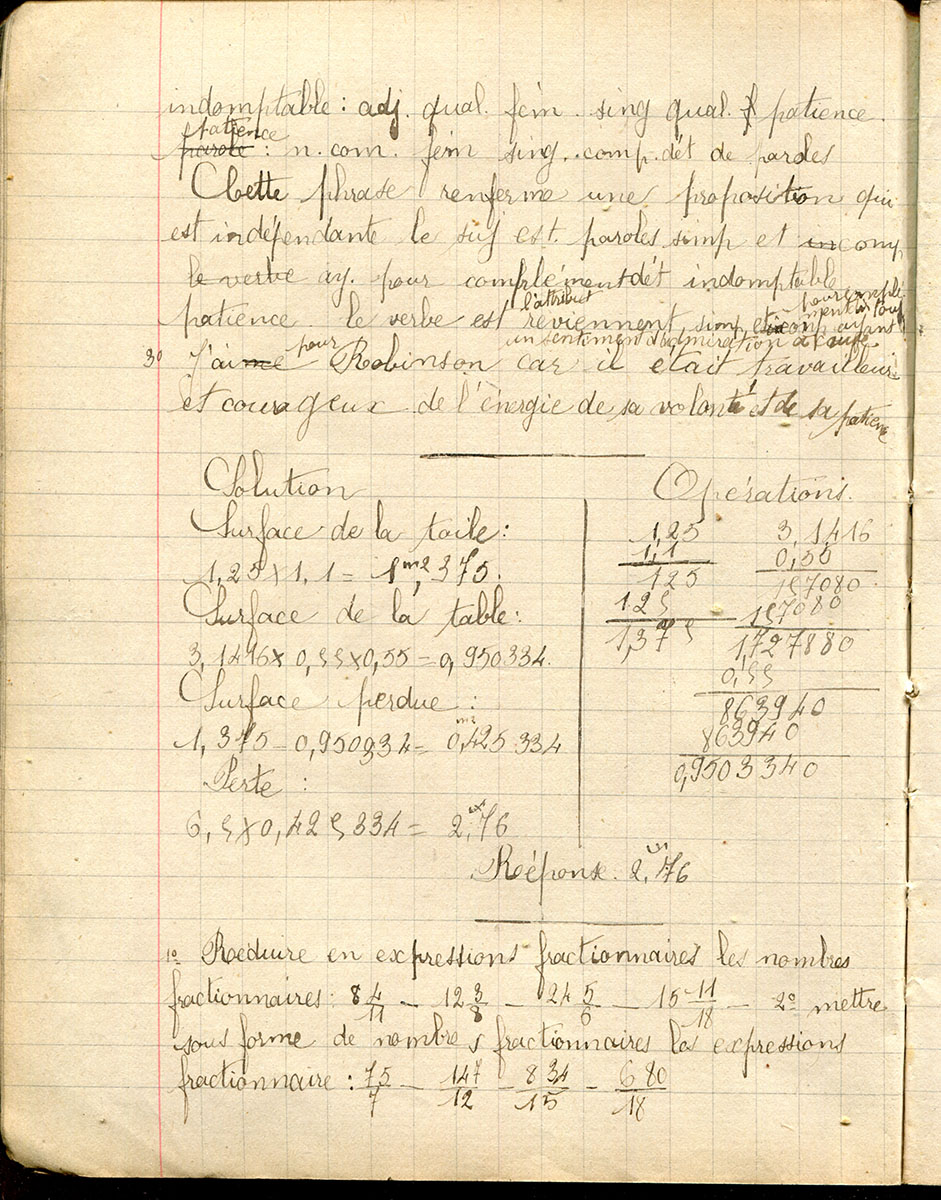 indomptable : adj. qual. fém. sing qual. patience.
patience
parole : n. com. fém sing. comp. dét de paroles
Cette phrase renferme une proposition qui
est indépendante le suj est. paroles simp et incomp
le verbe ay. pour complément dét indomptable
l'attribut pour complé-
patience. le verbe est reviennent, simp, et incomp ayant
un sentiment d'admiration à cause
3º J'aime pour Robinson car il était travailleur
et courageux de l'énergie de sa volonté et de sa patience
Solution
Surface de la toile :
1,25 x 1,1 = 1m2,375.
Surface de la table :
3,1416 x 0,55 x 0,55 = 0,950334.
Surface perdue :
1,375 - 0,950334 = 0,m2425334
Perte :
6,5 x 0,425334 = 2,76
Opérations.
1,25 3,1416
1,1 0,55
125 157080
125 157080
1,375 1,727880
0,55
863940
863940
0,9503340
Réponse : 2,76
1º Réduire en expressions fractionnaires les nombres
fractionnaires : 8 4/11 - 12 3/8 - 24 5/6 - 15 11/18 - 2º mettre
sous forme de nombres fractionnaires les expressions
fractionnaire : 75/7 - 147/12 - 834/15 - 680/18